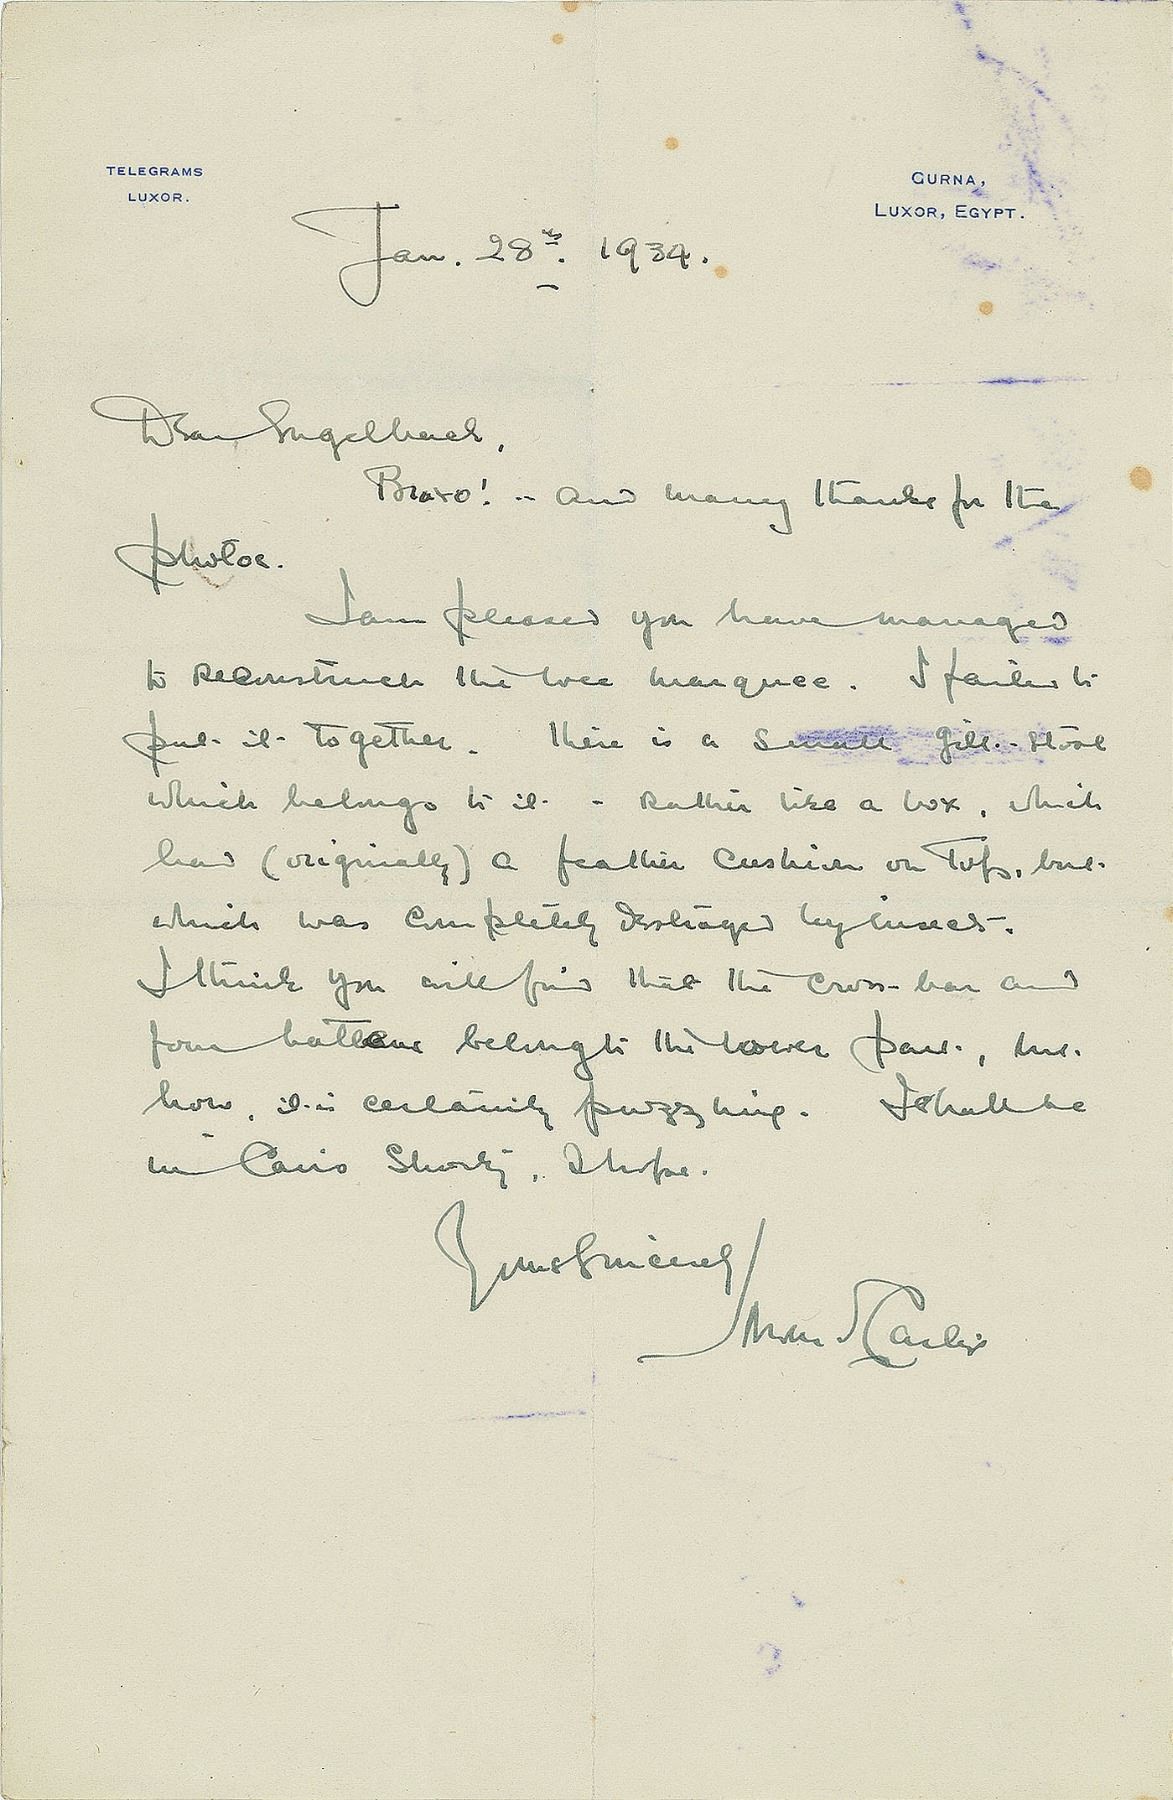 TELEGRAMS
LUXOR.
GURNA,
LUXOR, EGYPT.
Jan. 28th. 1934.
Dear Engelbach,
Bravo! -- and many thanks for the
photos.
I am pleased you have managed
to reconstruct the wee marquee. I failed to
put it together. There is a small gilt-stool
which belongs to it - rather like a box, which
had (originally) a feather cushion on top, but
which was completely destroyed by insects.
I think you will find that the cross-bar and
four battens belong to the lower part, but
how, it is certainly puzzling. I shall be
in Cairo shortly, I hope.
Yours sincerely
Howard Carter